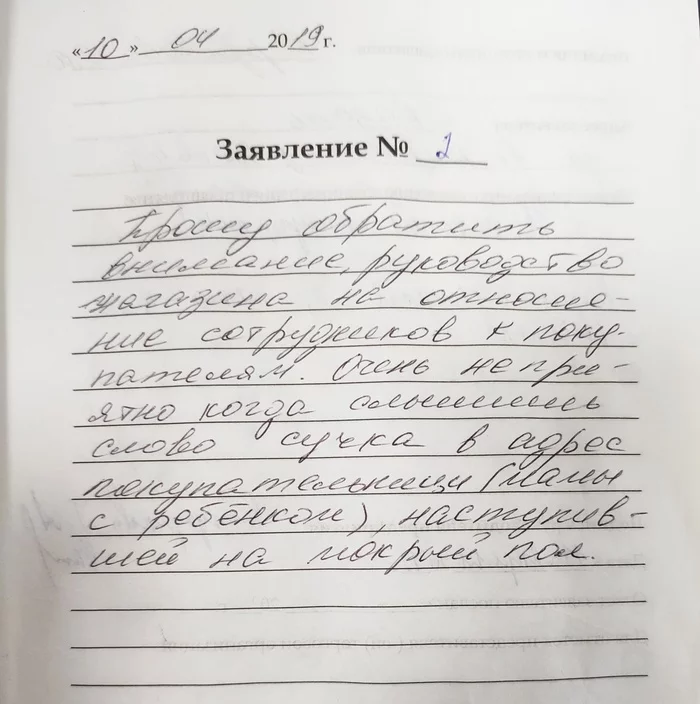 «10» 04 2019 г.
Заявление № 2
Прошу обратить
внимание, руководство
магазина на отноше-
ние сотрудников к поку-
пателям. Очень непри-
ятно когда слышишь
слово сучка в адрес
покупательницы (мамы
с ребёнком), наступив-
шей на мокрый пол.